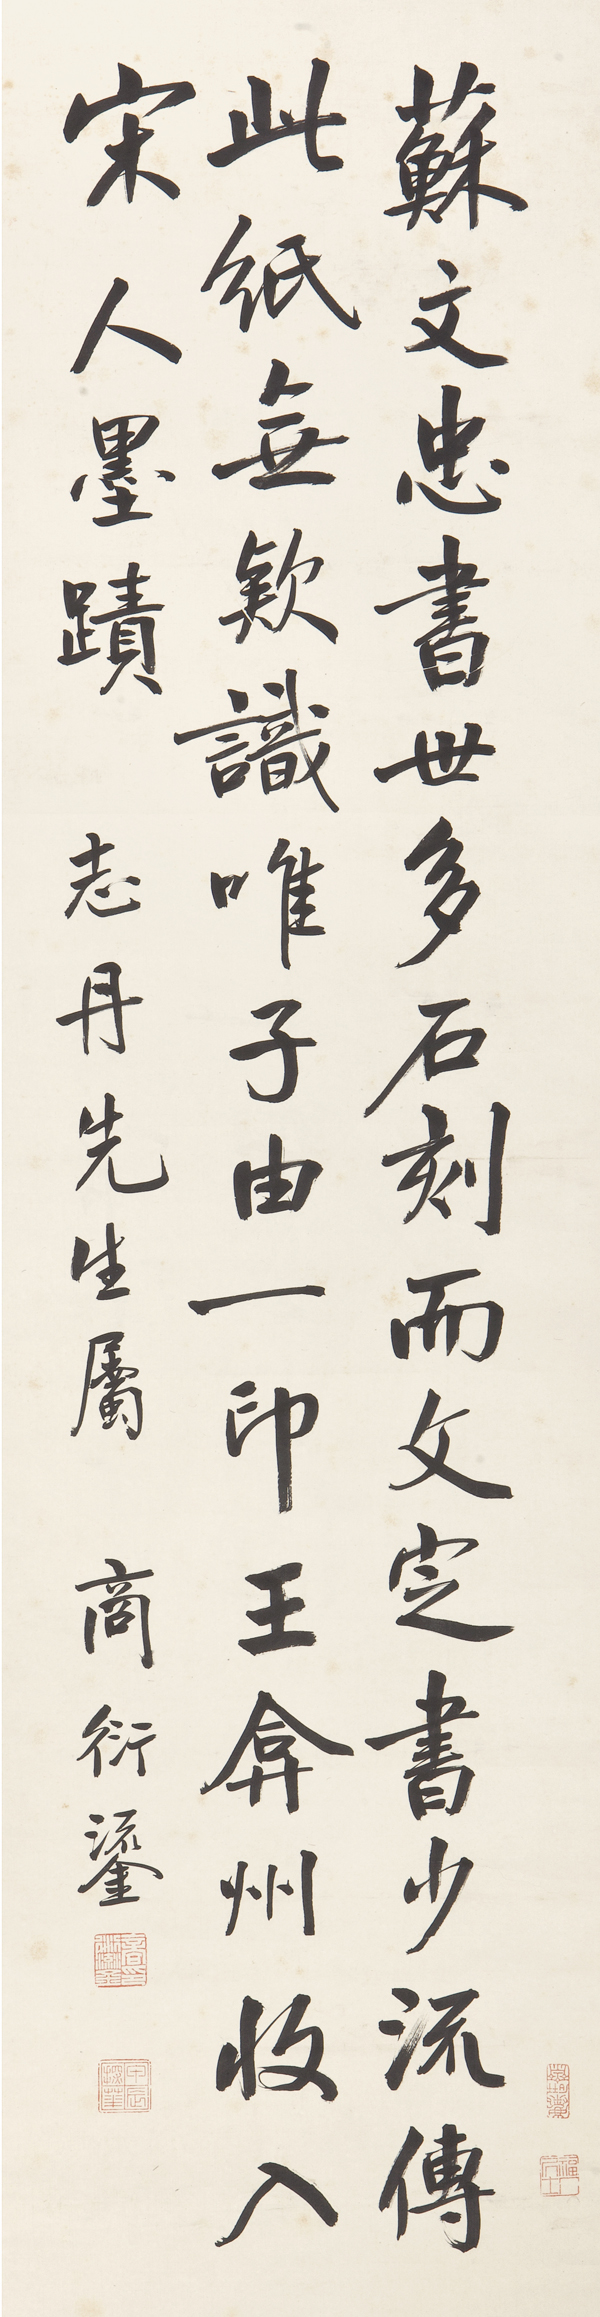 蘇文忠書世多石刻而文定書少流傳
此紙無欵識唯子由一印王弇州收入
宋人墨蹟
志丹先生屬
商衍鎏
甲辰探華